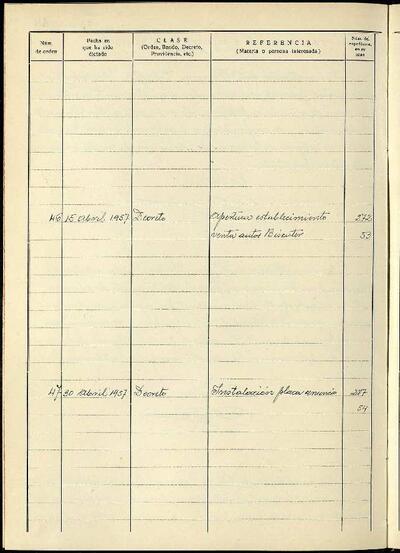 Núm. de orden
Fecha en que ha sido dictado
CLASE
(Orden, Bando, Decreto, Providencia, etc.)
REFERENCIA
(Materia o persona interesada)
Núm. del expediente, en su caso
46 15 Abril 1957 Decreto Apertura establecimiento 272
venta autos Biscuter 53
47 30 Abril 1957 Decreto Instalación placa anuncio
54